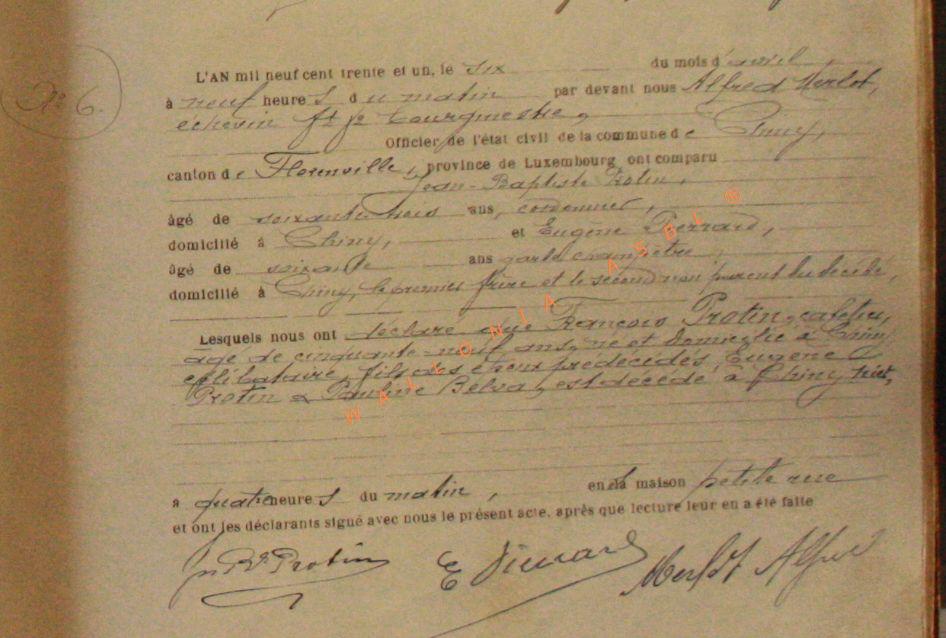 N° 6.
L'AN mil neuf cent trente et un, le six du mois d'avril,
à neuf heures du matin par devant nous Alfred Merlot,
échevin ff de bourgmestre,
Officier de l'état civil de la commune de Chiny,
canton de Florenville, province de Luxembourg ont comparu
Jean-Baptiste Protin,
âgé de soixante trois ans, cordonnier,
domicilié à Chiny, et Eugène Pierrard,
âgé de soixante ans garde champêtre,
domicilié à Chiny, le premier frère et le second non parent du décédé,
Lesquels nous ont déclaré que François Protin, cafetier,
âgé de cinquante-neuf ans, né et domicilié à Chiny
célibataire, fils des époux prédécédés Eugène
Protin & Pauline Belva, est décédé à Chiny hier,
à quatre heures du matin, en la maison petite rue
et ont les déclarants signé avec nous le présent acte, après que lecture leur en a été faite
JnBte Protin E Pierrard Merlot Alfred
WALLONIA ASBL ©